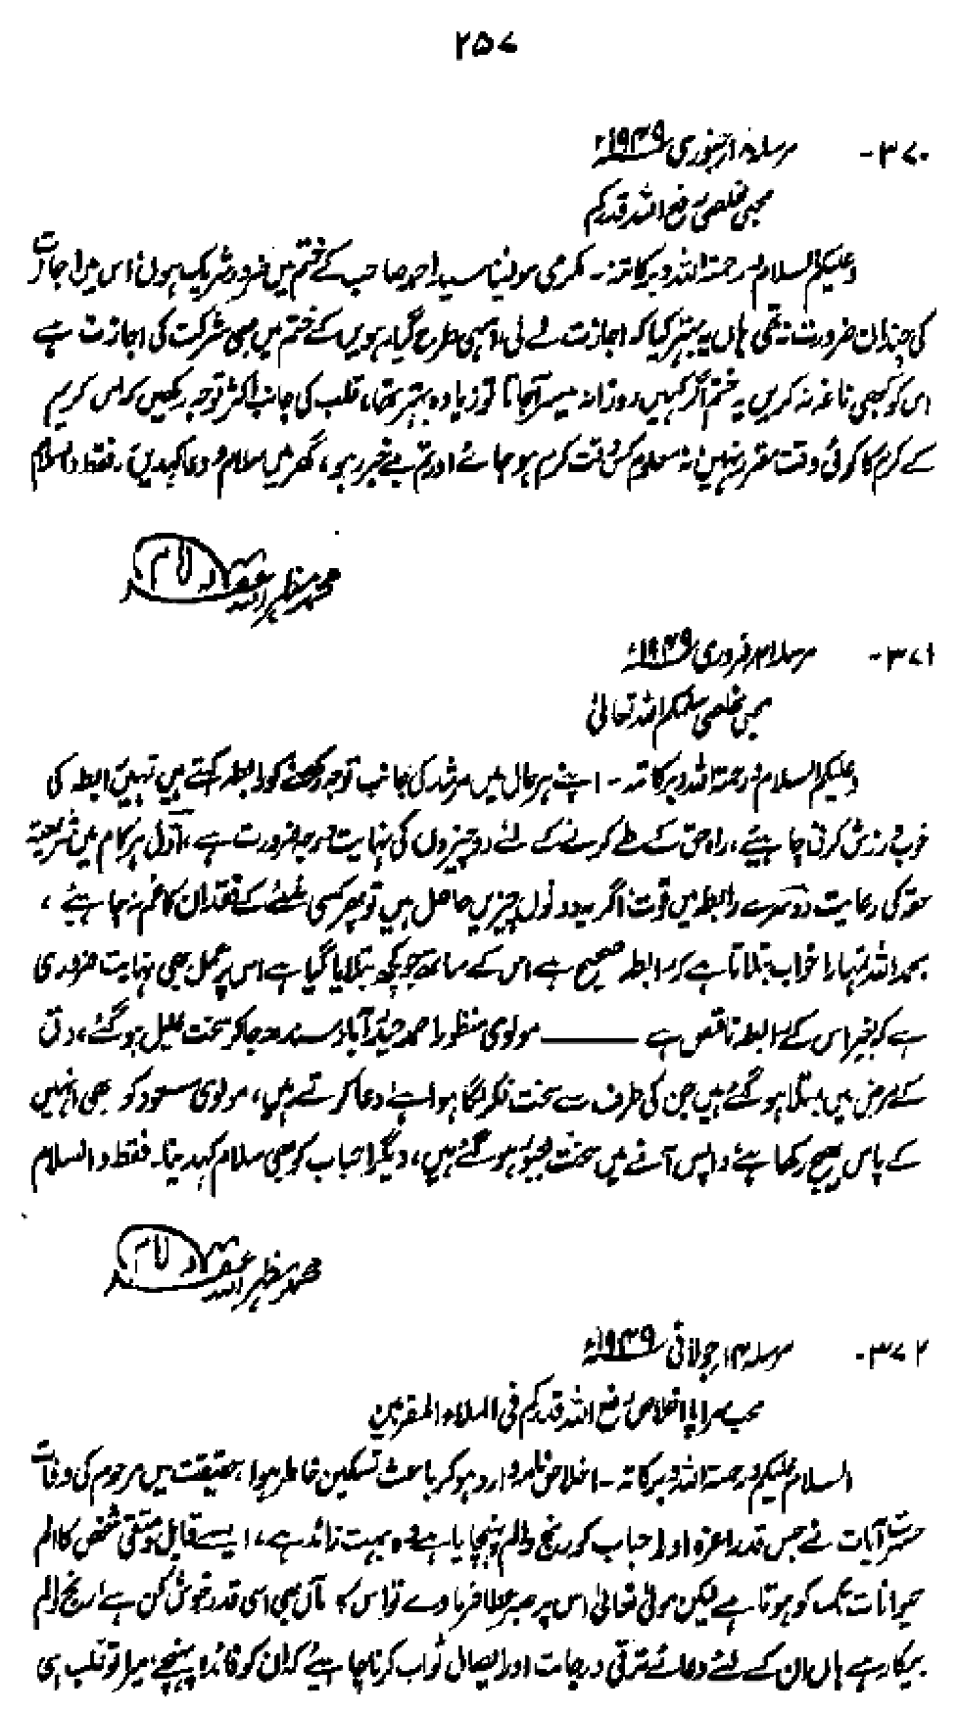 ۲۵۷
۳۷۰- مرسلہ ۱۸ جنوری ۱۹۳۹ء
محبی مخلصی رفع اللہ قدرکم
وعلیکم السلام ورحمۃ اللہ وبرکاتہٗ۔ مکرمی مولینا سید احمد صاحب کے ختم میں ضرور شریک ہوں اس میں اجازت
کی چنداں ضرورت نہ تھی ہاں یہ بہتر کیا کہ اجازت لے لی، اسی طرح گیارہویں کے ختم میں بھی شرکت کی اجازت ہے
اس کو کبھی ناغہ نہ کریں یہ ختم اگر کہیں روزانہ میسر آجاتا تو زیادہ بہتر تھا، قلب کی جانب اکثر توجہ رکھیں کہ اس کریم
کے کرم کا کوئی وقت مقرر نہیں نہ معلوم کس وقت کرم ہو جائے اور تم بے خبر رہو، گھر میں سلام و دعا کہدیں۔ فقط والسلام
محمد مظہر اللہ غفرلہ امام
۳۷۱- مرسلہ فروری ۱۹۳۹ء
محبی مخلصی سلمکم اللہ تعالیٰ
وعلیکم السلام ورحمۃ اللہ وبرکاتہٗ۔ اپنے ہر حال میں مرشد کی جانب توجہ رکھنے کو رابطہ کہتے ہیں تمہیں رابطہ کی
خوب ورزش کرنی چاہیئے، راہ حق کے طے کرنے کے لئے دو چیزوں کی نہایت درجہ ضرورت ہے، اول ہر کام میں شریعت
حقہ کی رعایت دوسرے رابطہ میں قوت اگر یہ دونوں چیزیں حاصل ہیں تو پھر کسی شئے کے فقدان کا غم نہ چاہیئے،
بحمداللہ تمہارا خواب بتلاتا ہے کہ رابطہ صحیح ہے اس کے ساتھ جو کچھ بتلایا گیا ہے اس پر عمل بھی نہایت ضروری
ہے کہ بغیر اس کے رابطہ ناقص ہے ——— مولوی منظور احمد حیدرآباد سندھ جاکر سخت علیل ہو گئے، دق
کے مرض میں مبتلا ہو گئے ہیں جن کی طرف سے سخت فکر لگا ہوا ہے دعا کرتے رہیں، مولوی مسعود کو بھی انہیں
کے پاس بھیج رکھا ہے واپس آنے میں سخت مجبور ہو گئے ہیں، دیگر احباب کو بھی سلام کہدینا۔ فقط والسلام
محمد مظہر اللہ غفرلہ امام
۳۷۲- مرسلہ جولائی ۱۹۳۹ء
محب سراپا اخلاص رفع اللہ قدرکم فی الملاء المقربین
السلام علیکم ورحمۃ اللہ وبرکاتہٗ۔ اخلاص نامہ وارد ہو کر باعث تسکین خاطر ہوا، حقیقت میں مرحوم کی وفات
حسرت آیات نے جس قدر اعزہ اور احباب کو رنج و الم پہنچایا ہے وہ بہت زائد ہے، ایسے قابل و متقی شخص کا الم
حیوانات تک کو ہوتا ہے لیکن مولیٰ تعالیٰ اس پر صبر عطا فرماوے تو اس کا مآل بھی اسی قدر خوش کن ہے اب رنج و الم
بیکار ہے ہاں ان کے لئے دعائے ترقی درجات اور ایصال ثواب کرنا چاہیئے کہ ان کو فائدہ پہنچے، میرا تو قلب ہی